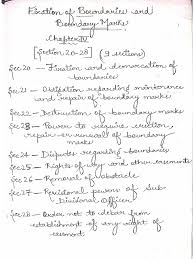 Erection of Boundaries and
Boundary Marks
Chapter IV
[Section 20-28] (9 sections)
Sec 20 - Fixation and demarcation of
boundaries
Sec 21 - regarding maintenance
and repair of boundary marks
Sec 22 - Destruction of boundary marks
Sec 23 - Power to require erection,
repair or renewal of boundary
marks
Sec 24 - Disputes regarding boundaries
Sec 25 - Rights of way and other easements
Sec 26 - Removal of obstacle
Sec 27 - Revisional powers of Sub
Divisional Officer
Sec 28 - Order not to debar from
establishment of any right of
easement